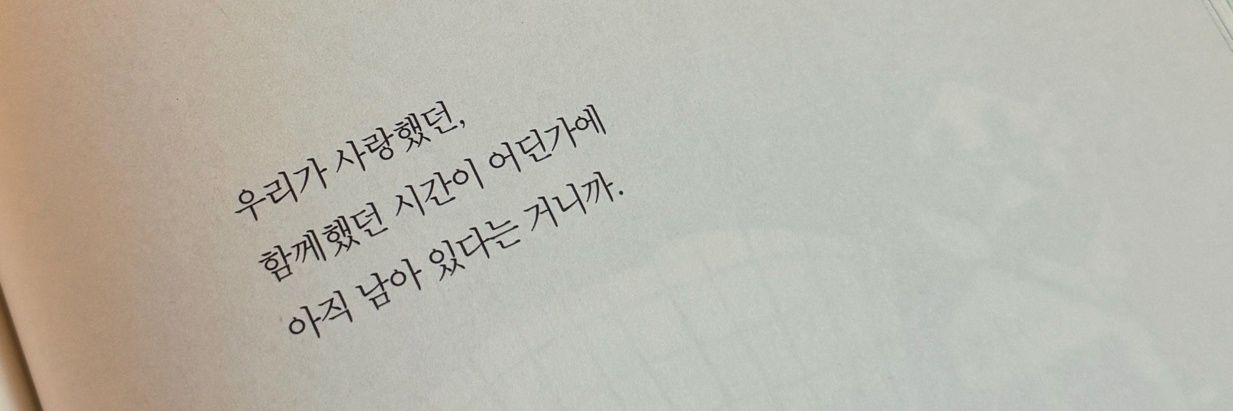 우리가 사랑했던,
함께했던 시간이 어딘가에
아직 남아 있다는 거니까.